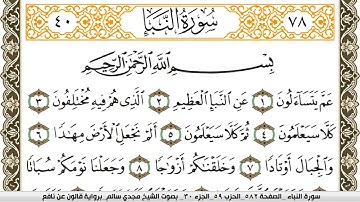 ٧٨ سُورَةُ النَّبَإِ ٤٠
بِسْمِ اللَّهِ الرَّحْمَٰنِ الرَّحِيمِ
عَمَّ يَتَسَاءَلُونَ ١ عَنِ النَّبَإِ الْعَظِيمِ ٢ الَّذِي هُمْ فِيهِ مُخْتَلِفُونَ ٣
كَلَّا سَيَعْلَمُونَ ٤ ثُمَّ كَلَّا سَيَعْلَمُونَ ٥ أَلَمْ نَجْعَلِ الْأَرْضَ مِهَادًا ٦
وَالْجِبَالَ أَوْتَادًا ٧ وَخَلَقْنَاكُمْ أَزْوَاجًا ٨ وَجَعَلْنَا نَوْمَكُمْ سُبَاتًا
سورة النباء _الصفحة ٥٨٢_الحزب ٥٩_الجزء ٣٠_ بصوت الشيخ مجدي سالم_برواية قالون عن نافع